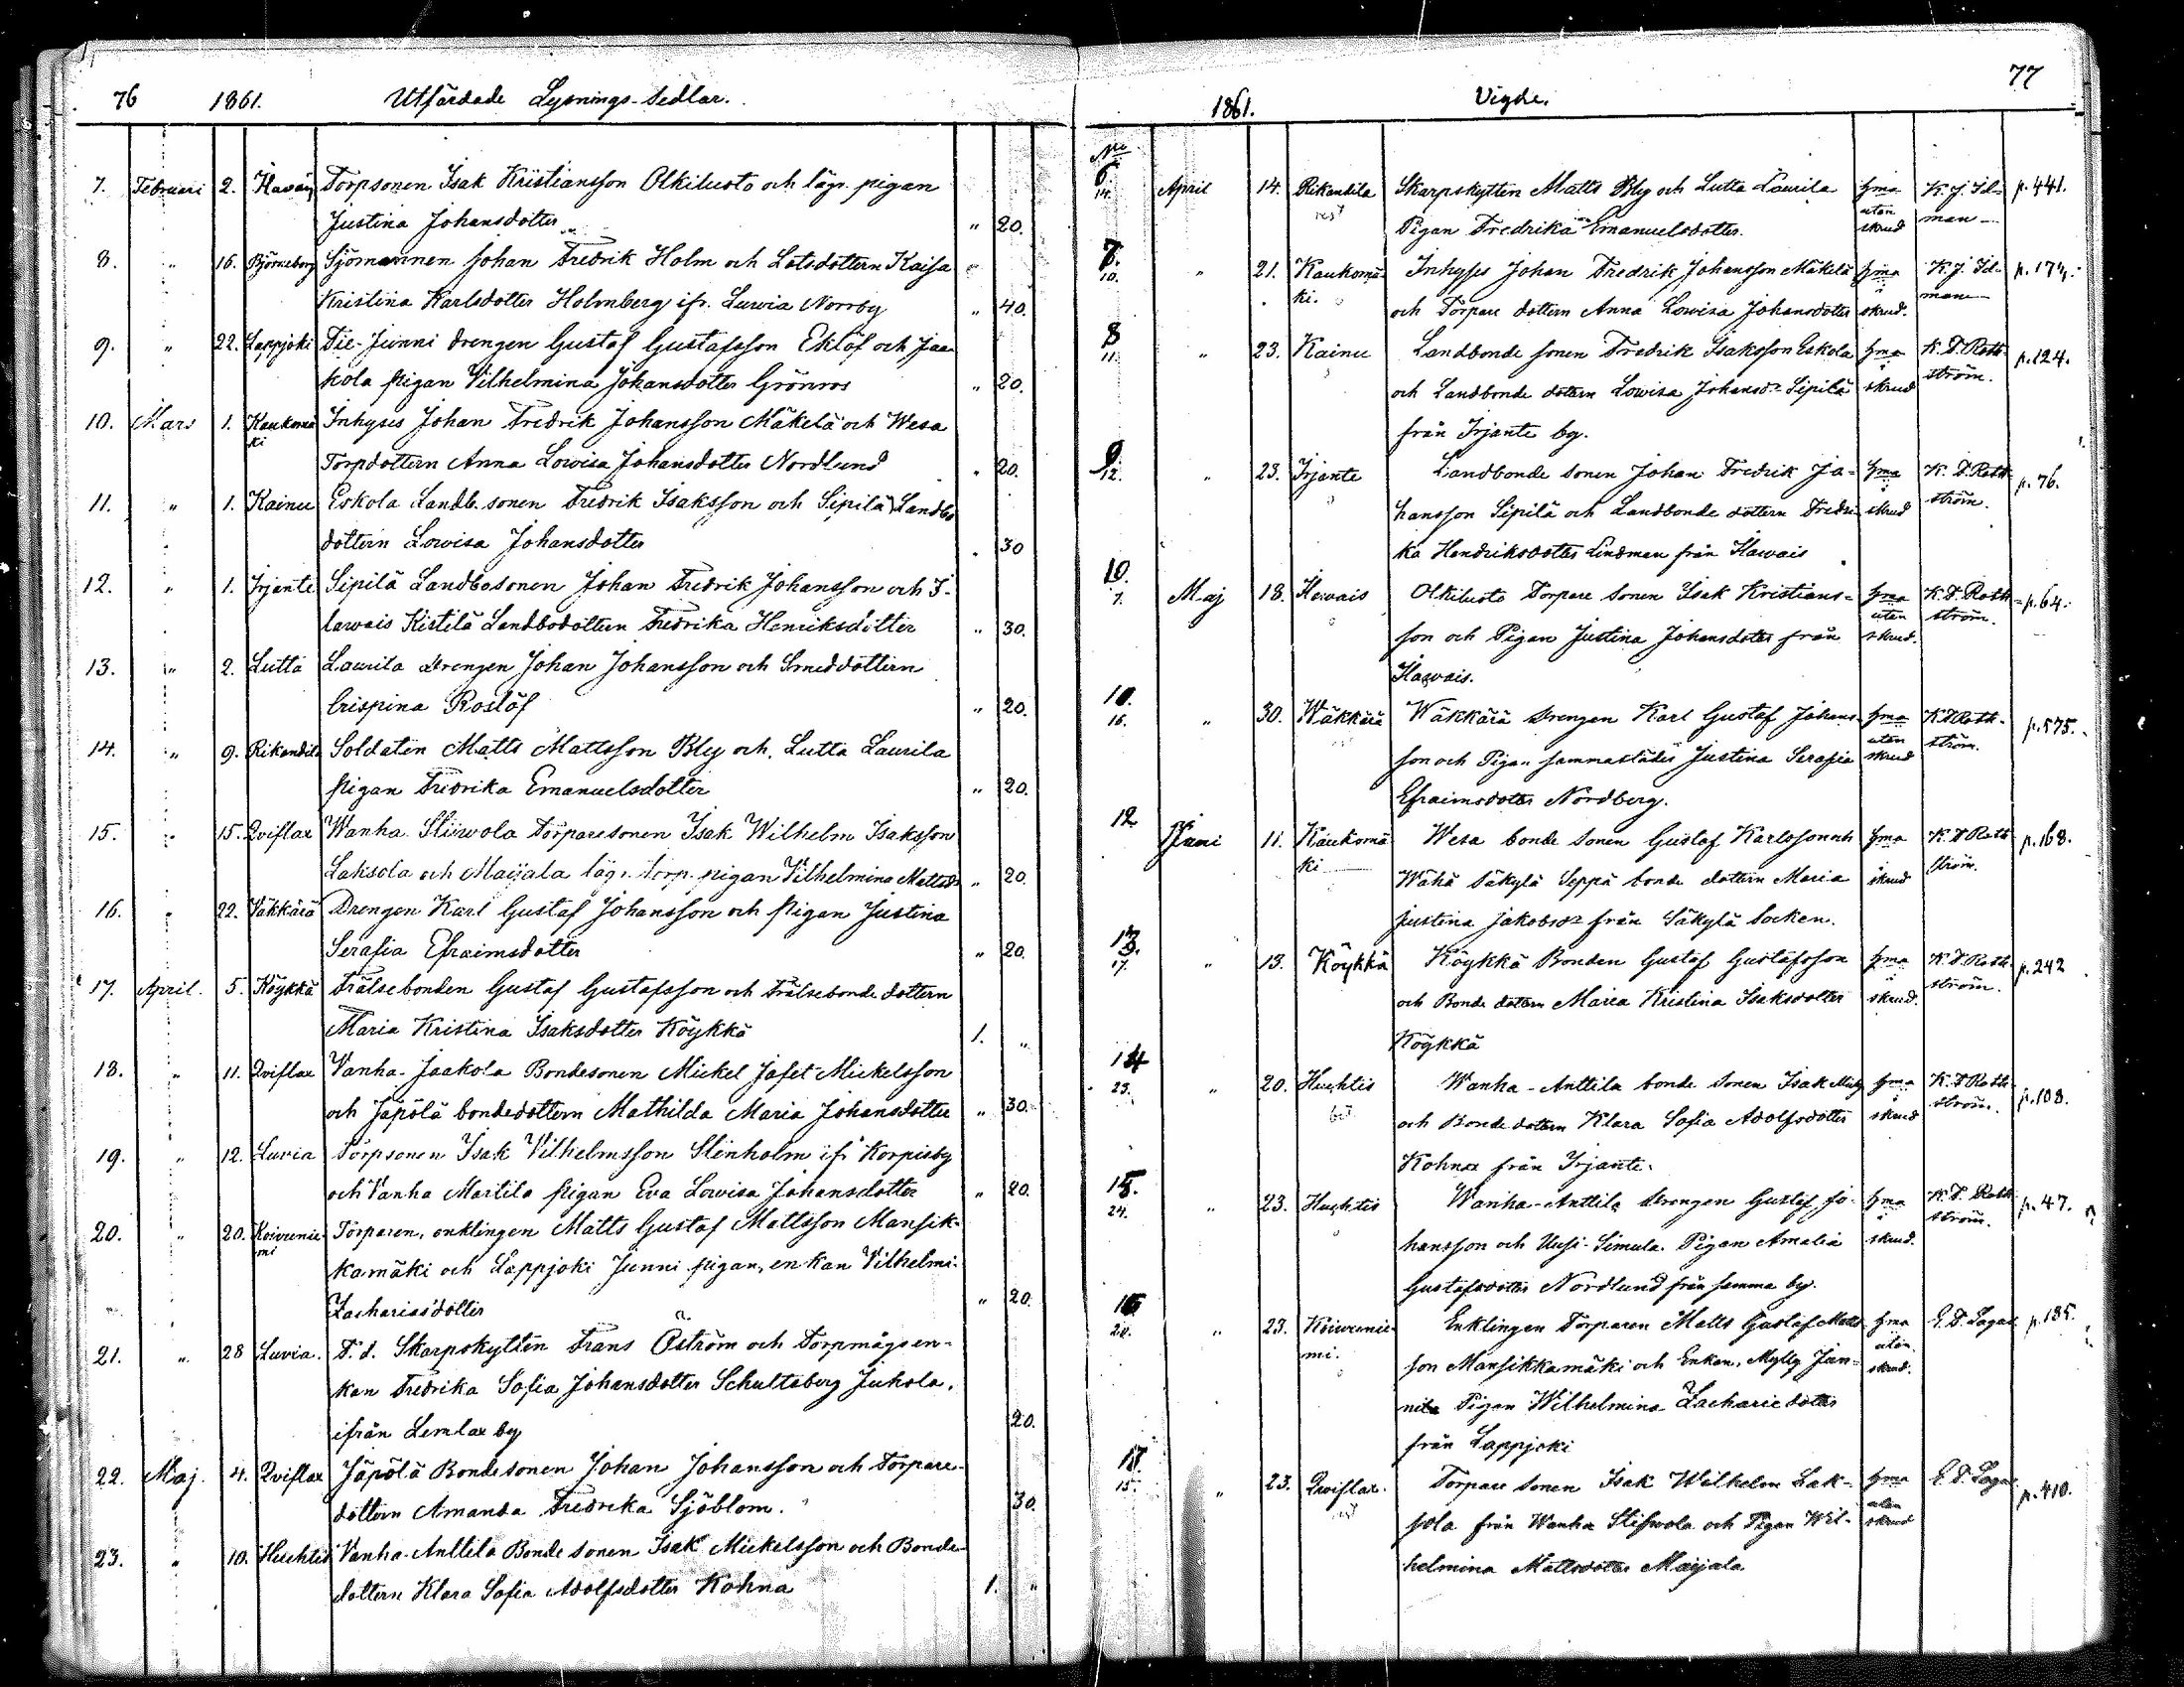 76 1861. Utfärdade Lysnings-Sedlar.
7. Februari 2. Havais Torpsonen Isak Kristiansson Olkiluoto och lägs. pigan
Justina Johansdotter " 20.
8. " 16. Björneborg Sjömannen Johan Fredrik Holm och Lotsdottern Kaisa
Kristina Karlsdotter Holmberg ifr. Luvia Norrby " 40.
9. " 22. Lappjoki Tie-Junni drengen Gustaf Gustafsson Eklöf och Jaa-
kola pigan Vilhelmina Johansdotter Grönroos " 20.
10. Mars 1. Kaukomä Inhyses Johan Fredrik Johansson Mäkelä och Wesa
ki
Torpdottern Anna Lowisa Johansdotter Nordlund " 20.
11. " 1. Kainu Eskola Landb. sonen Fredrik Isaksson och Sipilä Landbo
dottern Lowisa Johansdotter " 30
12. " 1. Irjante Sipilä Landbosonen Johan Fredrik Johansson och I-
lawais Kistilä Landbodottern Fredrika Henriksdotter " 30.
13. " 2. Lutta Laurila drengen Johan Johansson och Smeddottern
Crispina Roslöf " 20.
14. " 9. Rikandila Soldaten Matts Mattsson Bly och Lutta Laurila
pigan Fredrika Emanuelsdotter " 20.
15. " 15. Qviflax Wanha Stiwola Torparesonen Isak Wilhelm Isaksson
Laksola och Maijala läg. torp. pigan Vilhelmina Mattsd. " 20.
16. " 22. Väkkärä Drengen Karl Gustaf Johansson och Pigan Justina
Serafia Efraimsdotter " 20.
17. April. 5. Köykkä Frälsebonden Gustaf Gustafsson och Frälsebonde dottern
Maria Kristina Isaksdotter Köykkä 1. "
18. " 11. Qviflax Vanha-Jaakola Bondesonen Mickel Jafet Mickelsson
och Jäpölä bondedottern Mathilda Maria Johansdotter " 30.
19. " 12. Luvia Torpsonen Isak Vilhelmsson Stenholm ifr. Korpisby
och Vanha Martila pigan Eva Lowisa Johansdotter " 20.
20. " 20. Koivunie- Torparen, enklingen Matts Gustaf Mattsson Mansik-
mi
kamäki och Lappjoki Junni pigan, enkan Vilhelmi-
Zachariasdotter " 20.
21. " 28 Luvia. F.d. Skarpskytten Frans Öström och Torpmågsen-
kan Fredrika Sofia Johansdotter Schultsberg Juhola,
ifrån Lemlax by 20.
22. Maj. 4. Qviflax Jäpölä Bondesonen Johan Johansson och Torpare-
dottern Amanda Fredrika Sjöblom. 30.
23. " 10. Huchtis Vanha-Anttila Bonde sonen Isak Mickelsson och Bonde-
dottern Klara Sofia Adolfsdotter Kohna 1. "
1861. Vigde. 77
No
6 14. April 14. Rikandila Skarpskytten Matts Bly och Lutta Laurila hma utan skrud K. J. Id- p. 441.
Pigan Fredrika Emanuelsdotter. man
7. 10. " 21. Kaukomä Inhyses Johan Fredrik Johansson Mäkelä hma K. J. Id- p. 174.
ki. och Torpare dottern Anna Lowisa Johansdotter skrud. man
8 11. " 23. Kainu Landbonde sonen Fredrik Isaksson Eskola hma K. F. Roth- p. 124.
och Landbonde dottern Lowisa Johansdr Sipilä skrud ström.
från Irjante by.
9. 12. " 23. Irjante Landbonde sonen Johan Fredrik Jo- hma K. F. Roth- p. 76.
hansson Sipilä och Landbonde dottern Fredri- skrud ström.
ka Hendriksdotter Lindman från Hawais
10. 7. Maj 18. Hawais Olkiluoto Torpare sonen Isak Kristians- hma utan K. F. Roth- p. 64.
son och Pigan Justina Johansdotter från skrud. ström.
Hawais.
16. " 30. Wäkkärä Wäkkärä drengen Karl Gustaf Johans- hma utan K. F. Roth- p. 575.
son och Pigan sammastädes Justina Serafia skrud ström.
Efraimsdotter Nordberg.
12 Juni 11. Kaukomä Wesa bonde sonen Gustaf Karlsson och hma K. F. Roth p. 168.
ki Wähä Säkylä Seppä bonde dottern Maria skrud ström.
Justina Jakobsdr från Säkylä Socken.
13. 17. " 13. Köykkä Köykkä Bonden Gustaf Gustafsson hma K. F. Roth p. 242
och Bonde dottern Maria Kristina Isaksdotter skrud. ström.
Köykkä
14 23. " 20. Huchtis Wanha-Anttila bonde sonen Isak Mick hma K. F. Roth- p. 108.
och Bonde dottern Klara Sofia Adolfsdotter skrud ström.
Kohna från Irjante.
15. 24. " 23. Huchtis Wanha-Anttila drengen Gustaf Jo- hma K. F. Roth p. 47.
hansson och Uusi-Simula Pigan Amalia skrud. ström.
Gustafsdotter Nordlund från samma by.
16 20. " 23. Koivunie- Enklingen Torparen Matts Gustaf Matts- hma utan E. F. Lagus p. 185.
mi. son Mansikkamäki och Enkan, Mylly Jun- skrud.
nila Pigan Wilhelmina Zacharie dotter
från Lappjoki
17. 15. " 23. Qwiflax. Torpare sonen Isak Wilhelm Lak- hma utan E. F. Lagus p. 410.
sola från Wanha Stiwola och Pigan Wil- skrud
helmina Mattsdotter Maijala